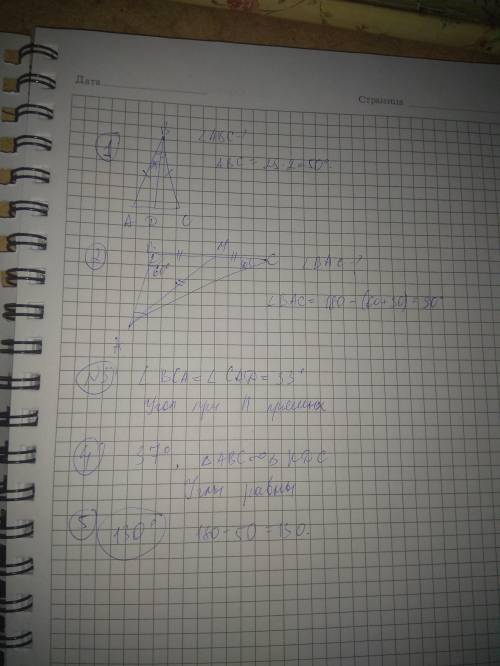 Дата
Страница
1
∠ABC?
ABC = 25·2=50°
A D C
2
M
60°
C
∠BAC?
∠BAC= 180-(60+30)=90°
A
N3
∠BCA=∠CAD=33°
Угол при
4
37°. △ABC∞△KDC
Углы равны
5
130° 180-50=130.